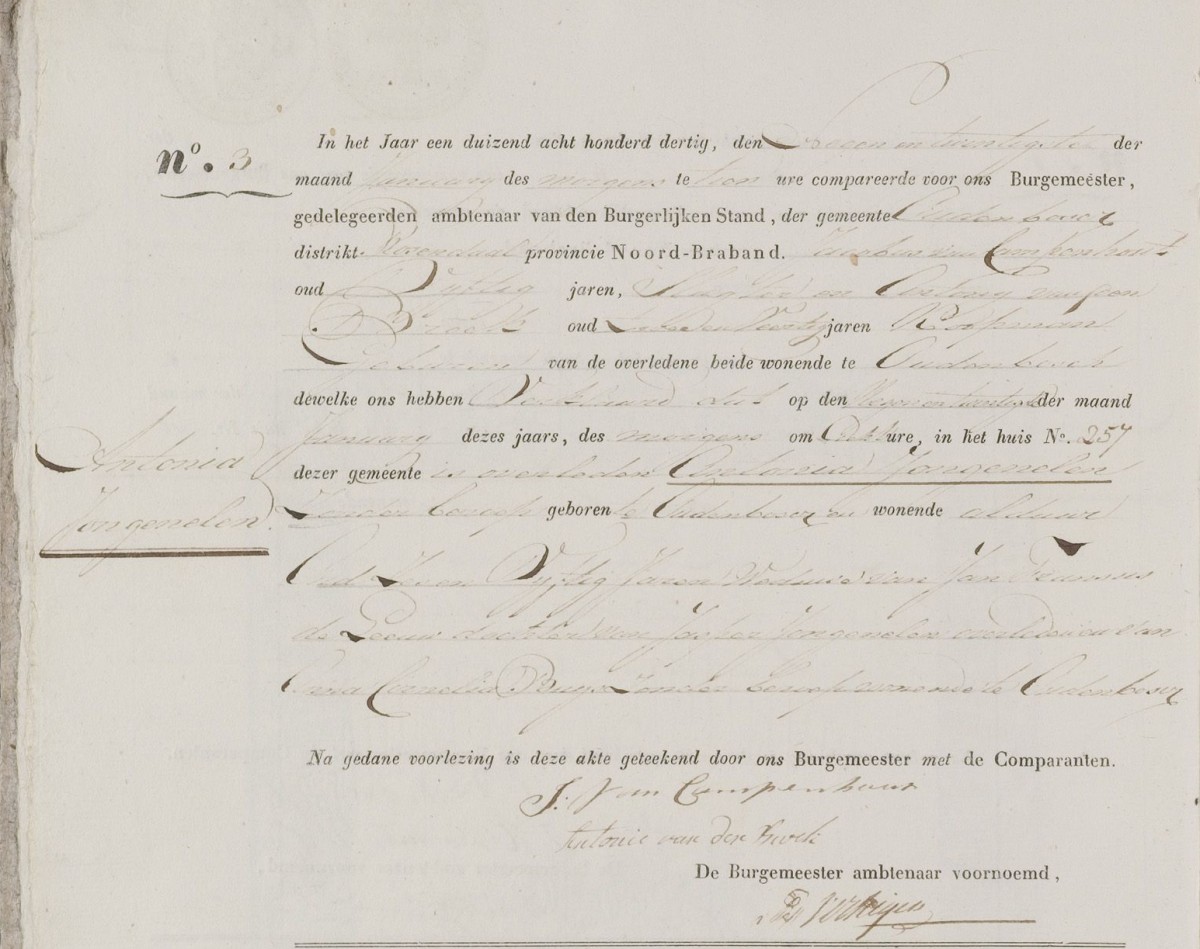 nº. 3
In het Jaar een duizend acht honderd dertig, den Zeven en twintigsten der
maand January des morgens te tien ure compareerde voor ons Burgemeester,
gedelegeerden ambtenaar van den Burgerlijken Stand, der gemeente Oudenbosch
distrikt Rosendaal provincie Noord-Braband. van Campenhout
oud Vyftig jaren, en Antony van den
Broek oud jaren Koopman
Geburen van de overledene beide wonende te Oudenbosch
dewelke ons hebben Verklaard dat op den twintigste der maand
January dezes jaars, des morgens om ure, in het huis No. 257
dezer gemeente is overleden Antonia Jongenelen
Zonder beroep geboren te Oudenbosch en wonende alduar
Antonia
Jongenelen
Oud Zeven Vyftig Jaren Weduwe van Jan Fransses
de Leeuw dochter van Jasper Jongenelen overleden en van
Anna Cornelia Buys Zonder beroep wonende te Oudenbosch
Na gedane voorlezing is deze akte geteekend door ons Burgemeester met de Comparanten.
J: Van Campenhout
Antonie van der Broek
De Burgemeester ambtenaar voornoemd,